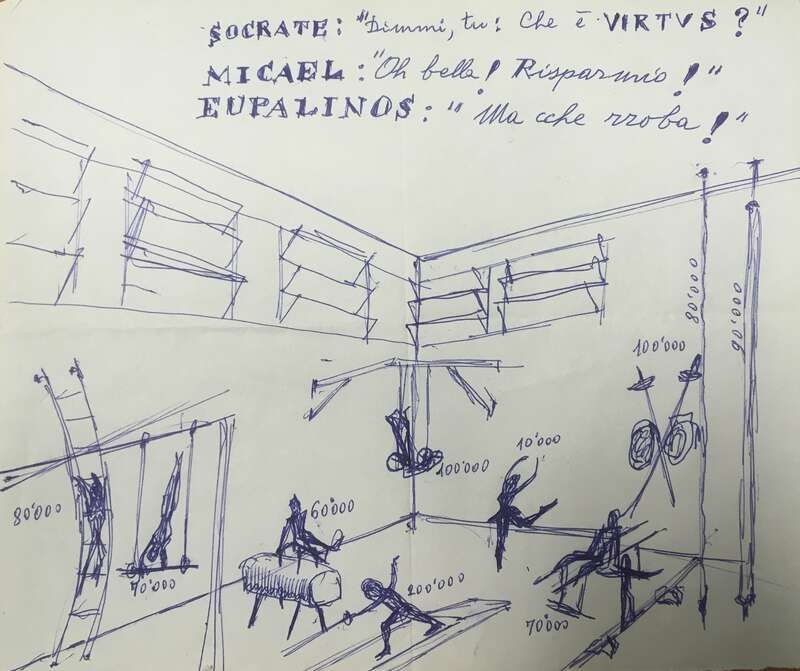 SOCRATE: "Dimmi, tu: Che è VIRTVS?"
MICAEL: "Oh bella! Risparmio!"
EUPALINOS: "Ma cche rroba!"
80'000
90'000
100'000
10'000
100'000
60'000
80'000
70'000
200'000
70'000